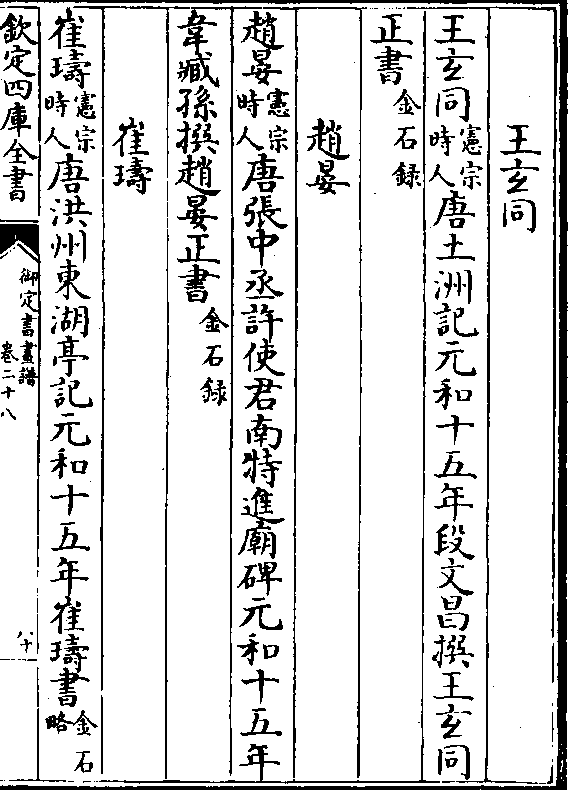 王玄同
王玄同憲宗時人唐土洲記元和十五年段文昌撰王玄同
正書金石録
趙晏
趙晏憲宗時人唐張中丞許使君南特進廟碑元和十五年
韋臧孫撰趙晏正書金石録
崔璹
崔璹憲宗時人唐洪州東湖亭記元和十五年崔璹書金石略
欽定四庫全書
御定書畫譜
卷二十八
八十